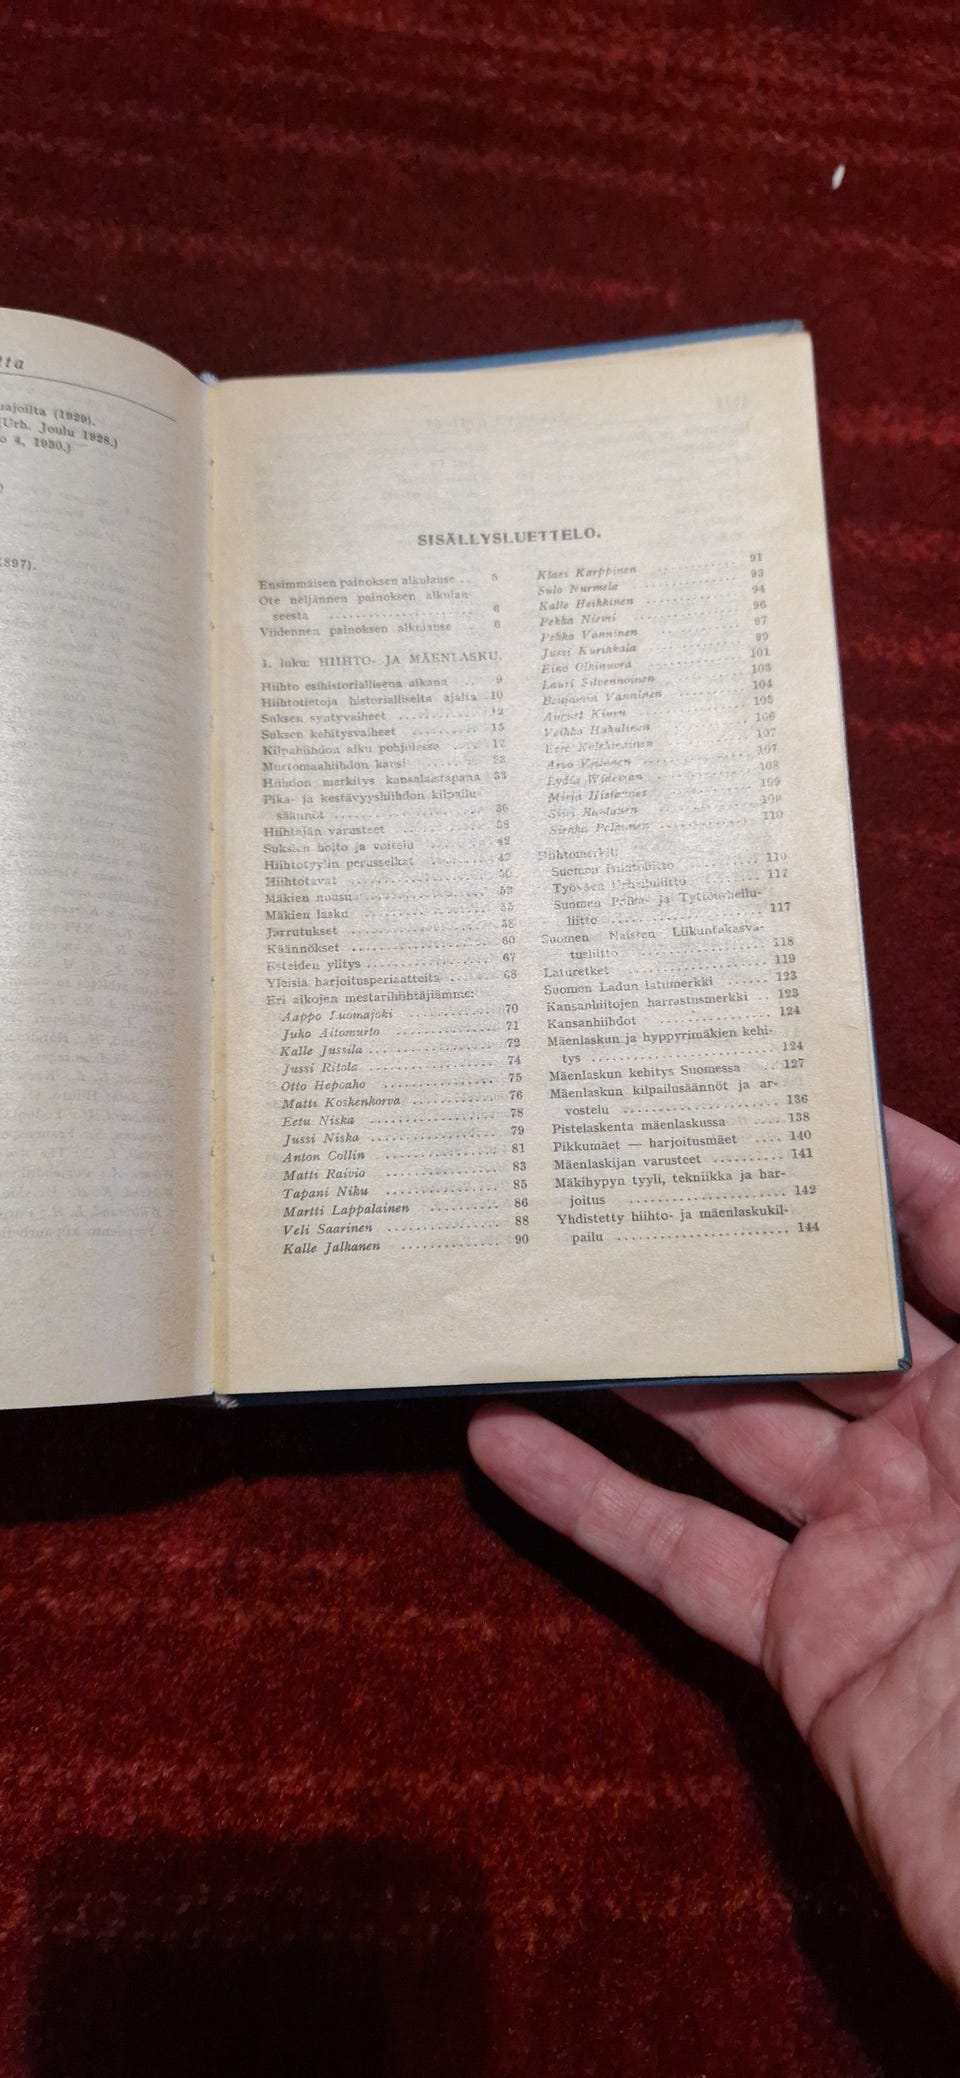 tta
uajoilta (1929).
(Urh. Joulu 1928.)
o 4, 1930.)
1897).
SISÄLLYSLUETTELO.
Ensimmäisen painoksen alkulause .. 5
Ote neljännen painoksen alkulau-
seesta .......... 6
Viidennen painoksen alkulause ... 6
1. luku: HIIHTO- JA MÄENLASKU.
Hiihto esihistoriallisena aikana ... 9
Hiihtotietoja historialliselta ajalta 10
Suksen syntyvaiheet .......... 12
Suksen kehitysvaiheet .......... 15
Kilpahiihdon alku pohjolassa .... 17
Murtomaahiihdon kansi .......... 23
Hiihdon merkitys kansalaistapana 33
Pika- ja kestävyyshiihdon kilpailu-
säännöt .......... 36
Hiihtäjän varusteet .......... 38
Suksien hoito ja voitelu .......... 42
Hiihtotyylin perusseikat .......... 47
Hiihtotavat .......... 50
Mäkien nousu .......... 53
Mäkien lasku .......... 55
Jarrutukset .......... 58
Käännökset .......... 60
Esteiden ylitys .......... 67
Yleisiä harjoitusperiaatteita ...... 68
Eri aikojen mestarihiihtäjiämme:
Aappo Luomajoki .......... 70
Juho Aitomurto .......... 71
Kalle Jussila .......... 72
Jussi Ritola .......... 74
Otto Hepoaho .......... 75
Matti Koskenkorva .......... 76
Eetu Niska .......... 78
Jussi Niska .......... 79
Anton Collin .......... 81
Matti Raivio .......... 83
Tapani Niku .......... 85
Martti Lappalainen .......... 86
Veli Saarinen .......... 88
Kalle Jalkanen .......... 90
Klaes Karppinen .......... 91
Sulo Nurmela .......... 93
Kalle Heikkinen .......... 94
Pekka Niemi .......... 96
Pekka Vanninen .......... 97
Jussi Kurikkala .......... 99
Eino Olkinuora .......... 101
Lauri Silvennoinen .......... 103
Benjamin Vanninen .......... 104
August Kiuru .......... 105
Veikko Hakulinen .......... 106
Eero Kolehmainen .......... 107
Arvo Viitanen .......... 107
Lydia Wideman .......... 108
Mirja Hietamies .......... 109
Siiri Rantanen .......... 109
Sirkka Polkunen .......... 110
Hiihtomerkit:
Suomen Hiihtoliitto .......... 110
Työväen Urheiluliitto .......... 117
Suomen Poika- ja Tyttöurheilu-
liitto .......... 117
Suomen Naisten Liikuntakasva-
tusliitto .......... 118
Laturetket .......... 119
Suomen Ladun latumerkki ...... 123
Kansanhiihtojen harrastusmerkki .. 123
Kansanhiihdot .......... 124
Mäenlaskun ja hyppyrimäkien kehi-
tys .......... 124
Mäenlaskun kehitys Suomessa .... 127
Mäenlaskun kilpailusäännöt ja ar-
vostelu .......... 136
Pistelaskenta mäenlaskussa ...... 138
Pikkumäet — harjoitusmäet .... 140
Mäenlaskijan varusteet .......... 141
Mäkihypyn tyyli, tekniikka ja har-
joitus .......... 142
Yhdistetty hiihto- ja mäenlaskukil-
pailu .......... 144